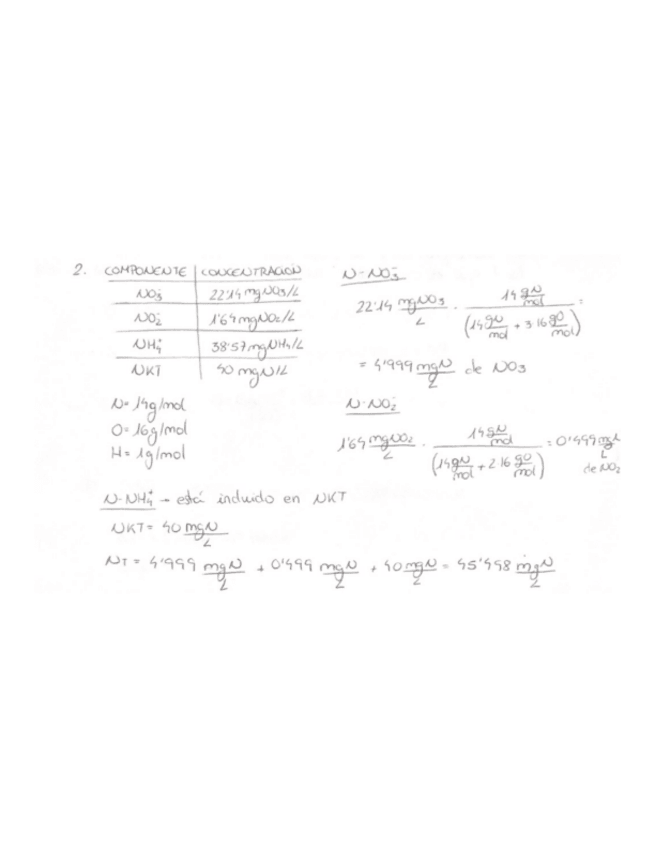 2. COMPONENTE | CONCENTRACIÓN
NO₃⁻ | 22'14 mg NO₃/L
NO₂⁻ | 1'64 mg NO₂/L
NH₄⁺ | 38'57 mg NH₄/L
NKT | 40 mg N/L
N = 14 g/mol
O = 16 g/mol
H = 1 g/mol
N-NO₃⁻
22'14 mg NO₃/L · 14 gN/mol / (14 gN/mol + 3·16 gO/mol) =
= 4'999 mg N/L de NO₃
N-NO₂⁻
1'64 mg NO₂/L · 14 gN/mol / (14 gN/mol + 2·16 gO/mol) = 0'499 mg N/L de NO₂
N-NH₄⁺ → está incluido en NKT
NKT = 40 mg N/L
NT = 4'999 mg N/L + 0'499 mg N/L + 40 mg N/L = 45'498 mg N/L